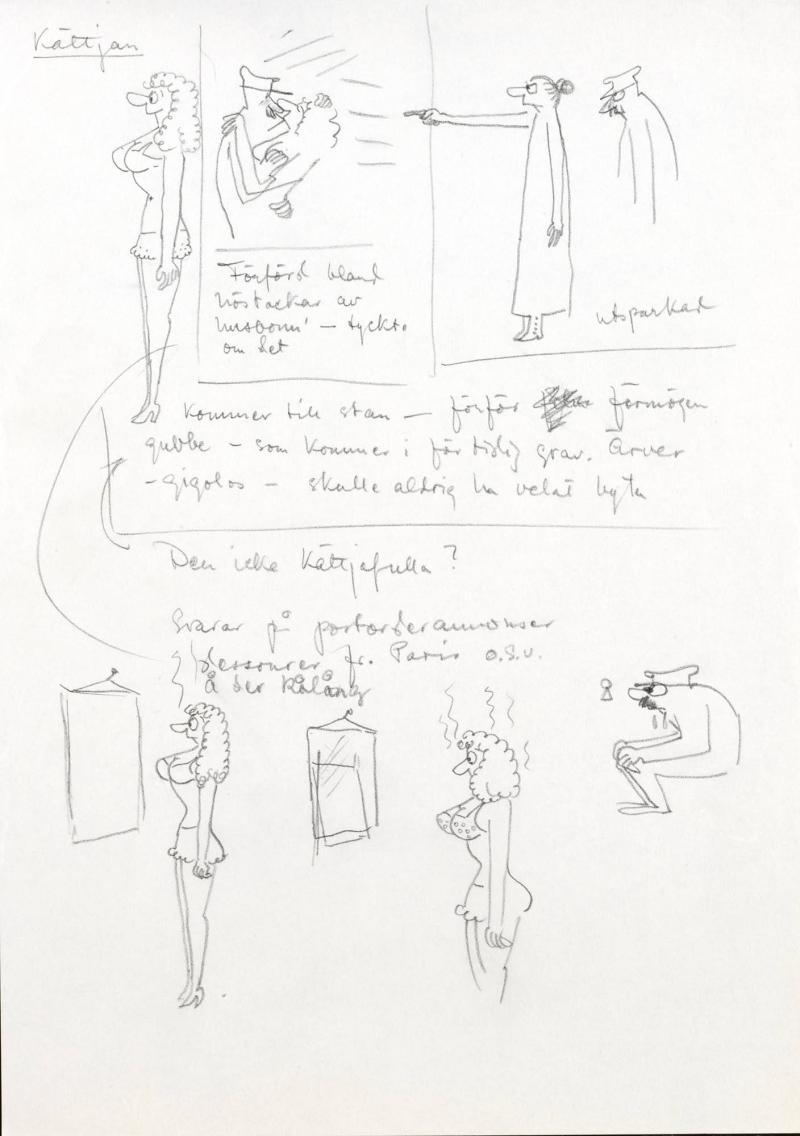 Kättjan
Förförd bland
höstackar av
husbonn' – tyckte
om det
utsparkad
Kommer till stan – förför förmögen
gubbe – som kommer i för tidig grav. Ärver
– gigolos – skulle aldrig ha velat byta
Den icke Kättjafulla?
Svarar på postorderannonser
dessouser fr. Paris o.s.v.
å der